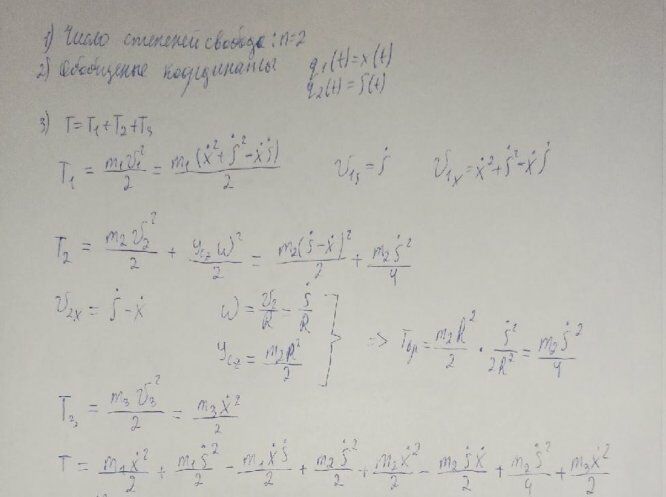 1) Число степеней свобода: n=2
2) Обобщеные координаты q₁(t)=x(t)
q₂(t)=ζ(t)
3) T=T₁+T₂+T₃
T₁ = m₁υ₁²/2 = m₁(ẋ²+ζ̇²-ẋζ̇)/2 υ₁ζ=ζ̇ υ₁ₓ=ẋ²+ζ̇²-ẋζ̇
T₂ = m₂υ₂²/2 + y_c₂ω²/2 = m₂(ζ̇-ẋ)²/2 + m₂ζ̇²/4
υ₂ₓ = ζ̇-ẋ ω = υ₂/R = ζ̇/R
y_c₂ = m₂R²/2 } => T_вр = m₂R²/2 · ζ̇²/2R² = m₂ζ̇²/4
T₃ = m₃υ₃²/2 = m₃ẋ²/2
T = m₁ẋ²/2 + m₁ζ̇²/2 - m₁ẋζ̇/2 + m₂ζ̇²/2 + m₂ẋ²/2 - m₂ζ̇ẋ/2 + m₂ζ̇²/4 + m₃ẋ²/2